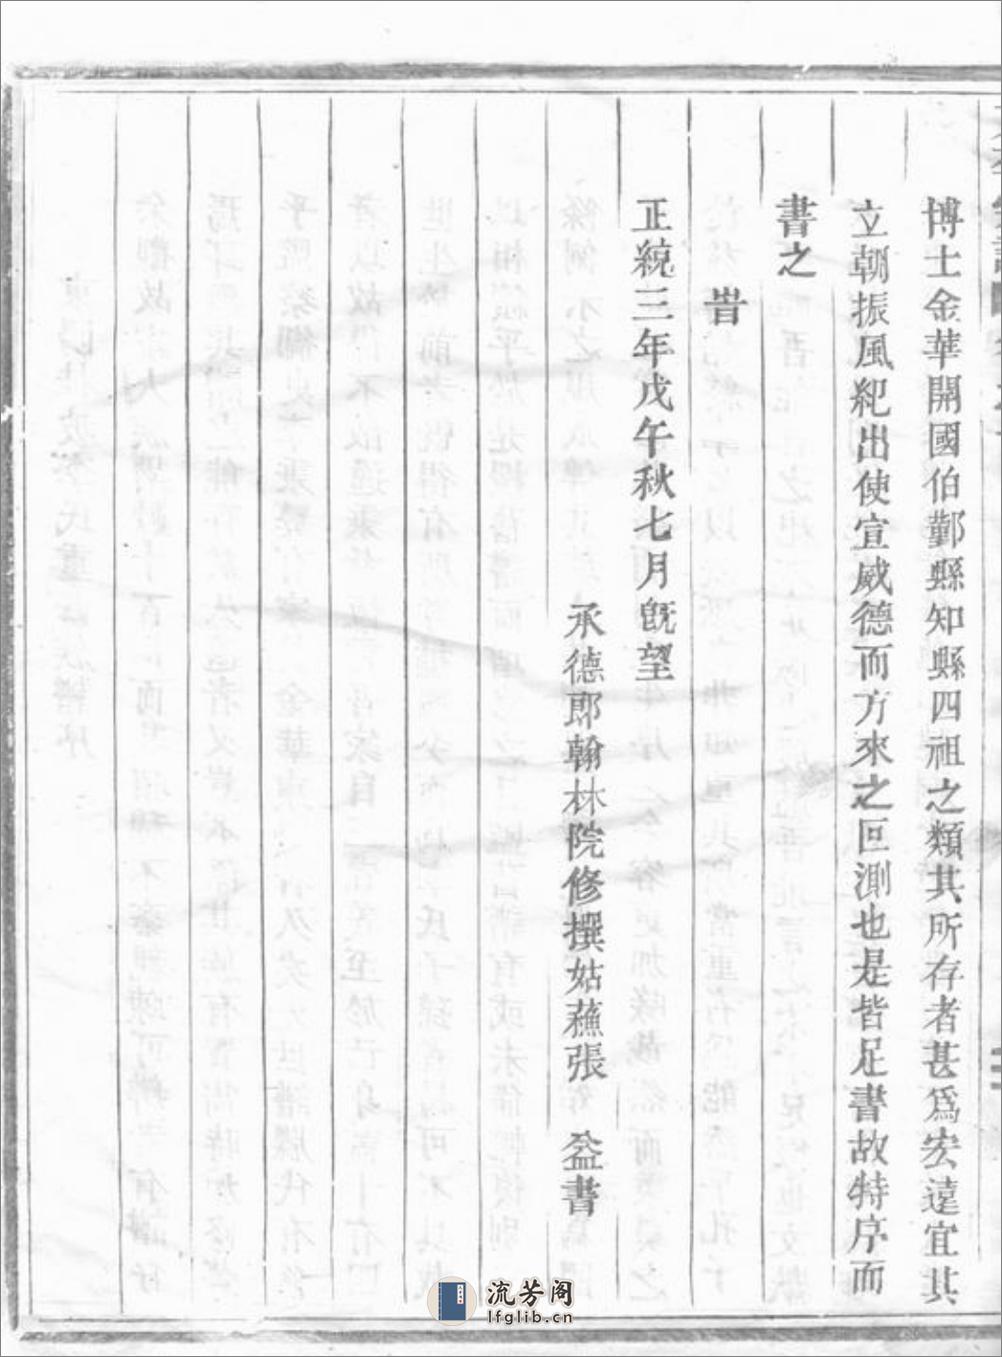 博士金華開國伯鄞縣知縣四祖之類其所存者甚爲宏遠宜其
立朝振風紀出使宣威德而方來之叵測也是皆足書故特序而
書之
旹
正統三年戊午秋七月旣望
承德郎翰林院修撰姑蘓張 益書
流芳阁
lfglib.cn